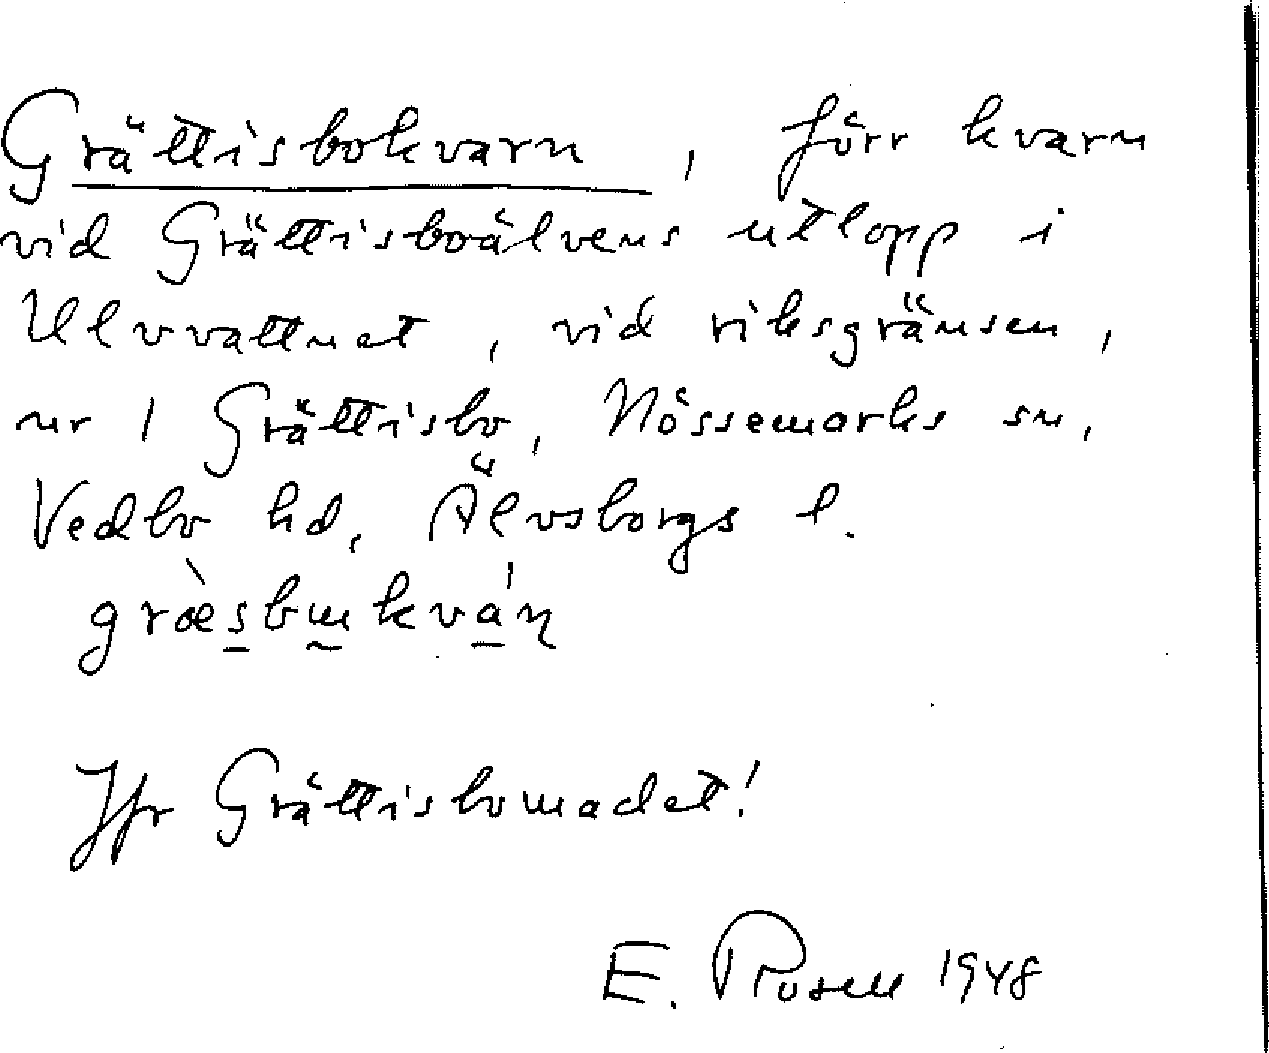 Grättisbokvarn, förr kvarn
vid Grättisboälvens utlopp i
Ulvvattnet, vid riksgränsen,
nr 1 Grättisbo, Nössemarks sn,
Vedbo hd, Älvsborgs l.
græ̀sbɯkván
Jfr Grättisbomadet!
E. Rosell 1948